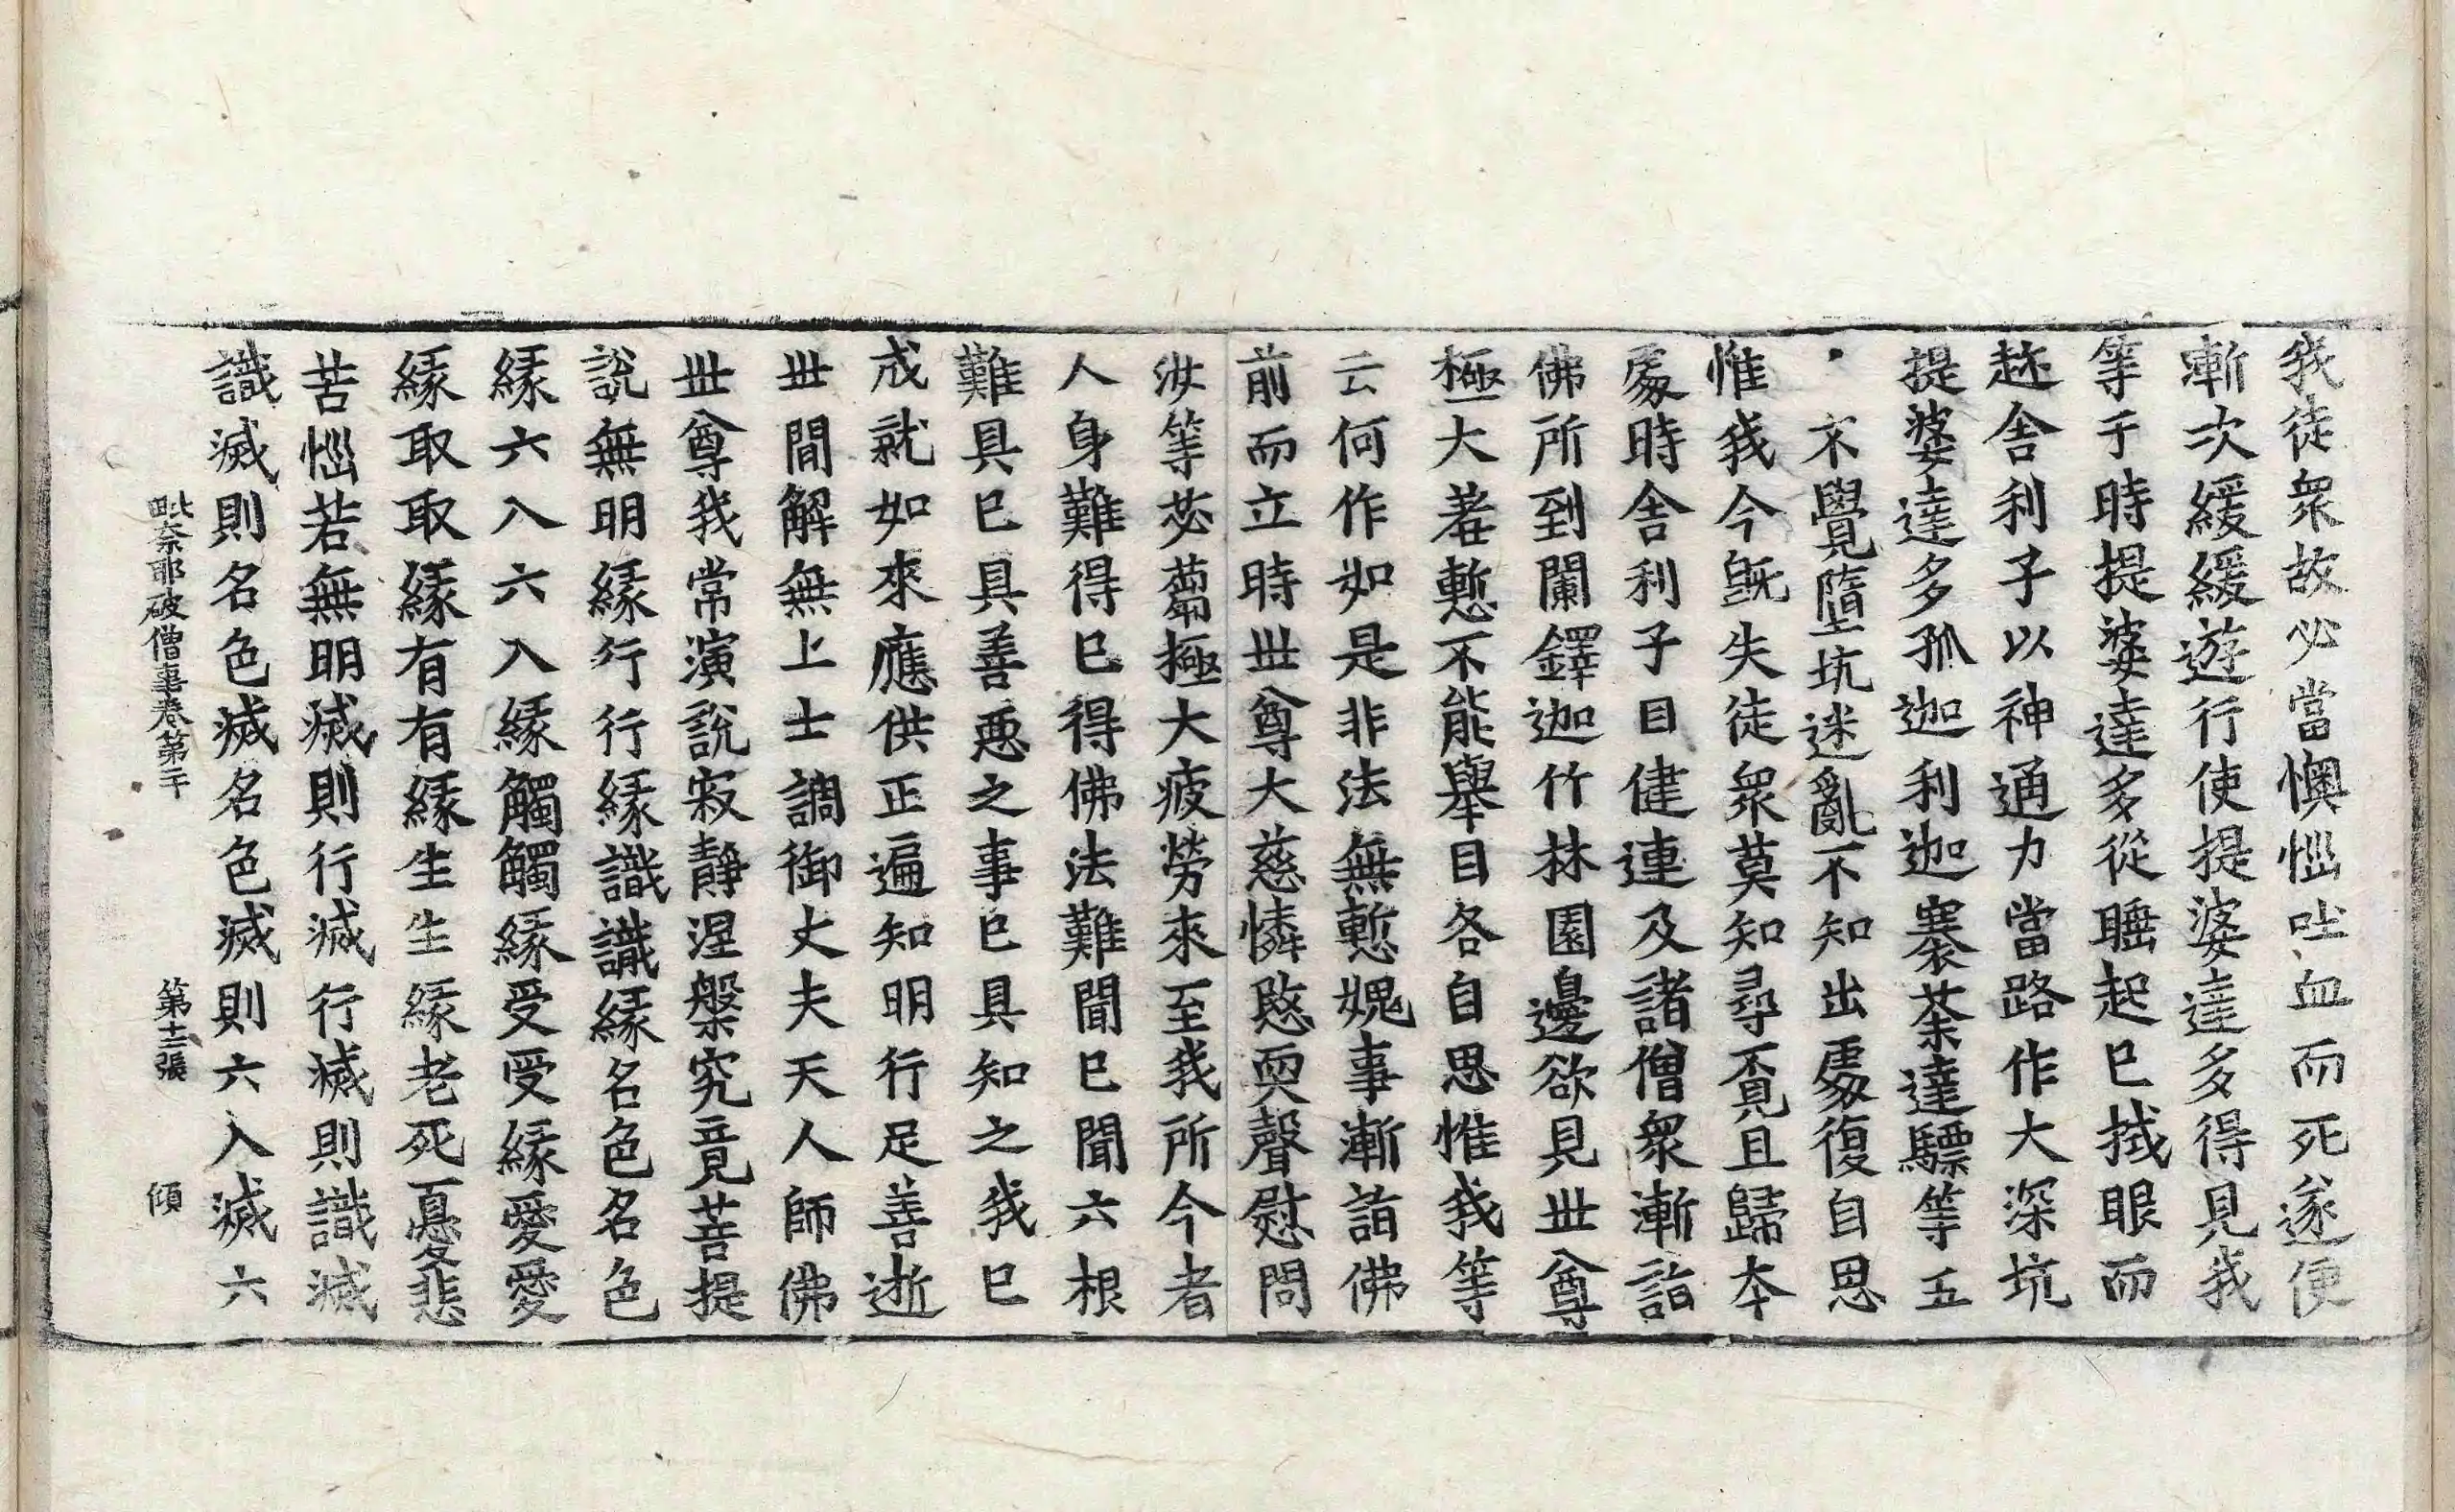 我徒衆故必當懊惱吐血而死遂便
漸次緩緩遊行使提婆達多得見我
等于時提婆達多從睡起已拭眼而
趂舍利子以神通力當路作大深坑
提婆達多孤迦利迦褰荼達驃等五
不覺墮坑迷亂不知出處復自思
惟我今旣失徒衆莫知尋覔且歸本
處時舍利子目健連及諸僧衆漸詣
佛所到闌鐸迦竹林園邊欲見世尊
極大著慙不能擧目各自思惟我等
云何作如是非法無慙愧事漸詣佛
前而立時世尊大慈憐愍耎聲慰問
汝等苾蒭極大疲勞來至我所今者
人身難得已得佛法難聞已聞六根
難具已具善惡之事已具知之我已
成就如來應供正遍知明行足善逝
世間解無上士調御丈夫天人師佛
世尊我常演說寂靜涅槃究竟菩提
說無明緣行行緣識識緣名色名色
緣六入六入緣觸觸緣受受緣愛愛
緣取取緣有有緣生生緣老死憂悲
苦惱若無明滅則行滅行滅則識滅
識滅則名色滅名色滅則六入滅六
毗奈耶破僧事卷第二十 第十二張 傾